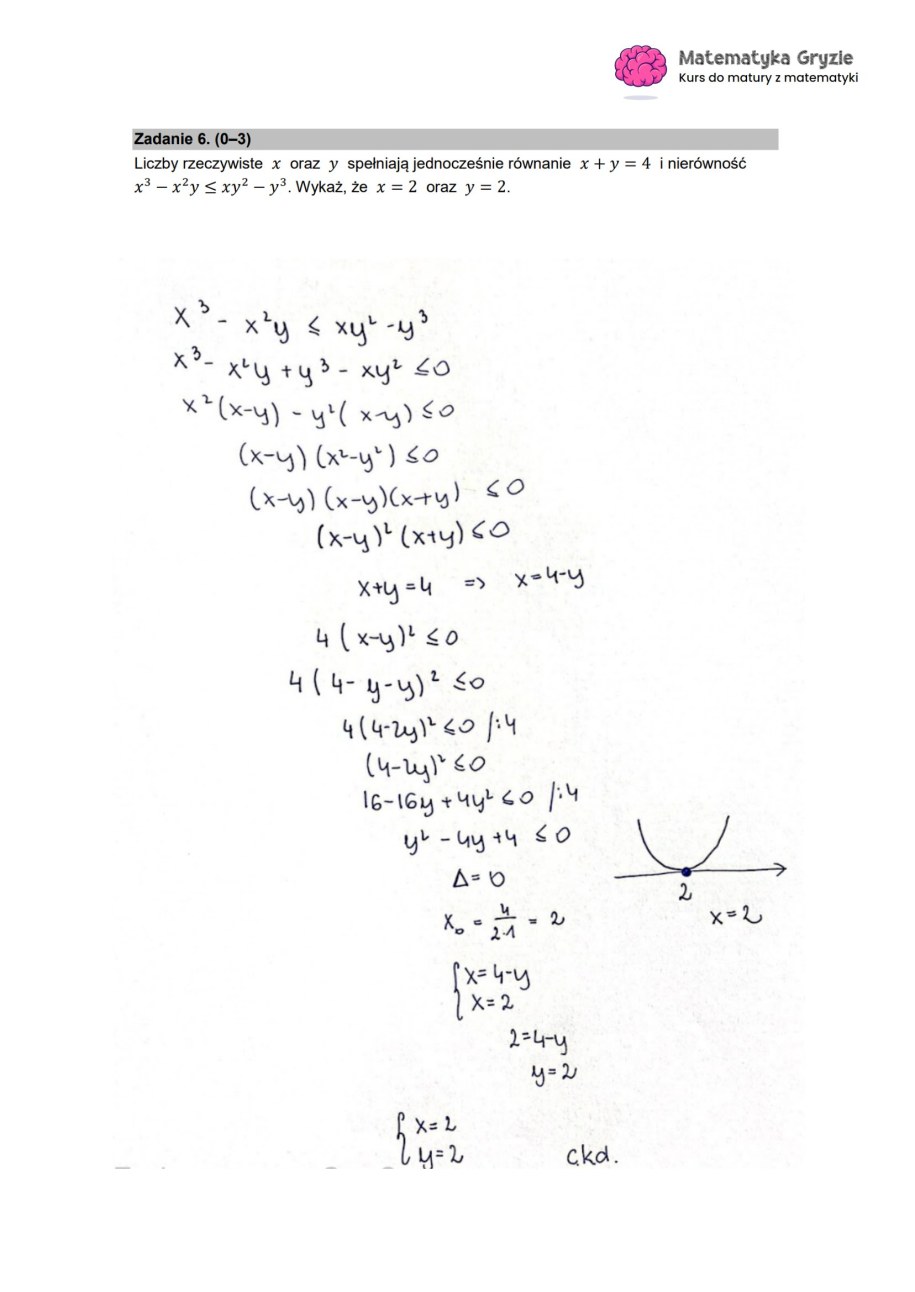 Matematyka Gryzie
Kurs do matury z matematyki
Zadanie 6. (0–3)
Liczby rzeczywiste x oraz y spełniają jednocześnie równanie x + y = 4 i nierówność
x³ − x²y ≤ xy² − y³. Wykaż, że x = 2 oraz y = 2.
x³ - x²y ≤ xy² - y³
x³ - x²y + y³ - xy² ≤ 0
x²(x-y) - y²(x-y) ≤ 0
(x-y)(x²-y²) ≤ 0
(x-y)(x-y)(x+y) ≤ 0
(x-y)²(x+y) ≤ 0
x+y=4 => x=4-y
4(x-y)² ≤ 0
4(4-y-y)² ≤ 0
4(4-2y)² ≤ 0 /:4
(4-2y)² ≤ 0
16-16y+4y² ≤ 0 /:4
y² - 4y + 4 ≤ 0
Δ = 0
x₀ = 4/2·1 = 2
2
x=2
{x=4-y
x=2
2=4-y
y=2
{x=2
y=2 ckd.